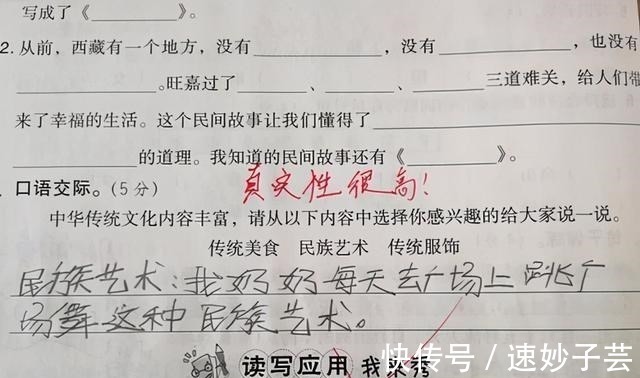 写成了《__________》。
2.从前，西藏有一个地方，没有__________，没有__________，也没有
__________。旺嘉过了______、______、______三道难关，给人们带
来了幸福的生活。这个民间故事让我们懂得了____________________
__________的道理。我知道的民间故事还有《__________》。
真实性很高！
口语交际。（5分）
中华传统文化内容丰富，请从以下内容中选择你感兴趣的给大家说一说。
传统美食 民族艺术 传统服饰
民族艺术：我奶奶每天去广场上跳广
场舞这种民族艺术。
读写应用 我来秀
快传号 / 速妙子芸